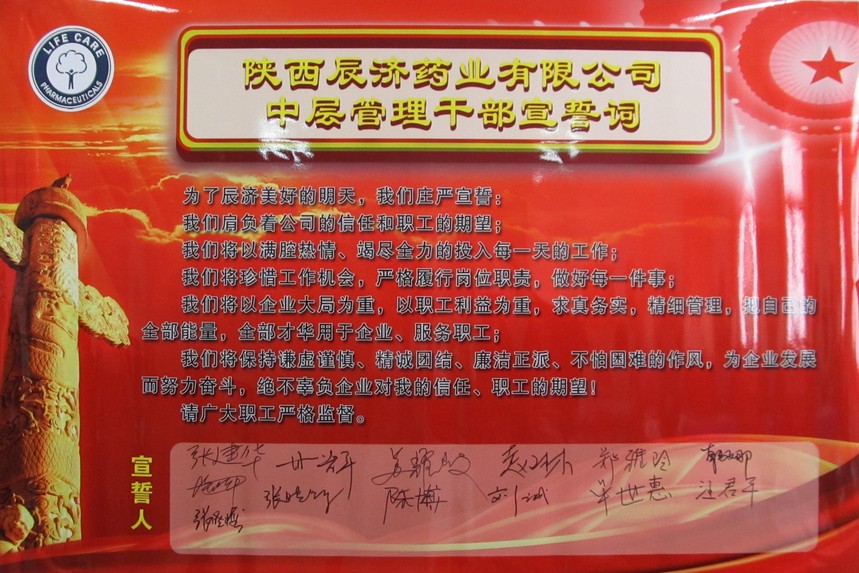 LIFE CARE
PHARMACEUTICALS
陕西辰济药业有限公司
中层管理干部宣誓词
为了辰济美好的明天，我们庄严宣誓：
我们肩负着公司的信任和职工的期望；
我们将以满腔热情、竭尽全力的投入每一天的工作；
我们将珍惜工作机会，严格履行岗位职责，做好每一件事；
我们将以企业大局为重，以职工利益为重，求真务实，精细管理，把自己的
全部能量，全部才华用于企业、服务职工；
我们将保持谦虚谨慎、精诚团结、廉洁正派、不怕困难的作风，为企业发展
而努力奋斗，绝不辜负企业对我的信任、职工的期望！
请广大职工严格监督。
宣誓人
张建华 郑雅玲
陈博 刘诚 毕世惠 汪君平